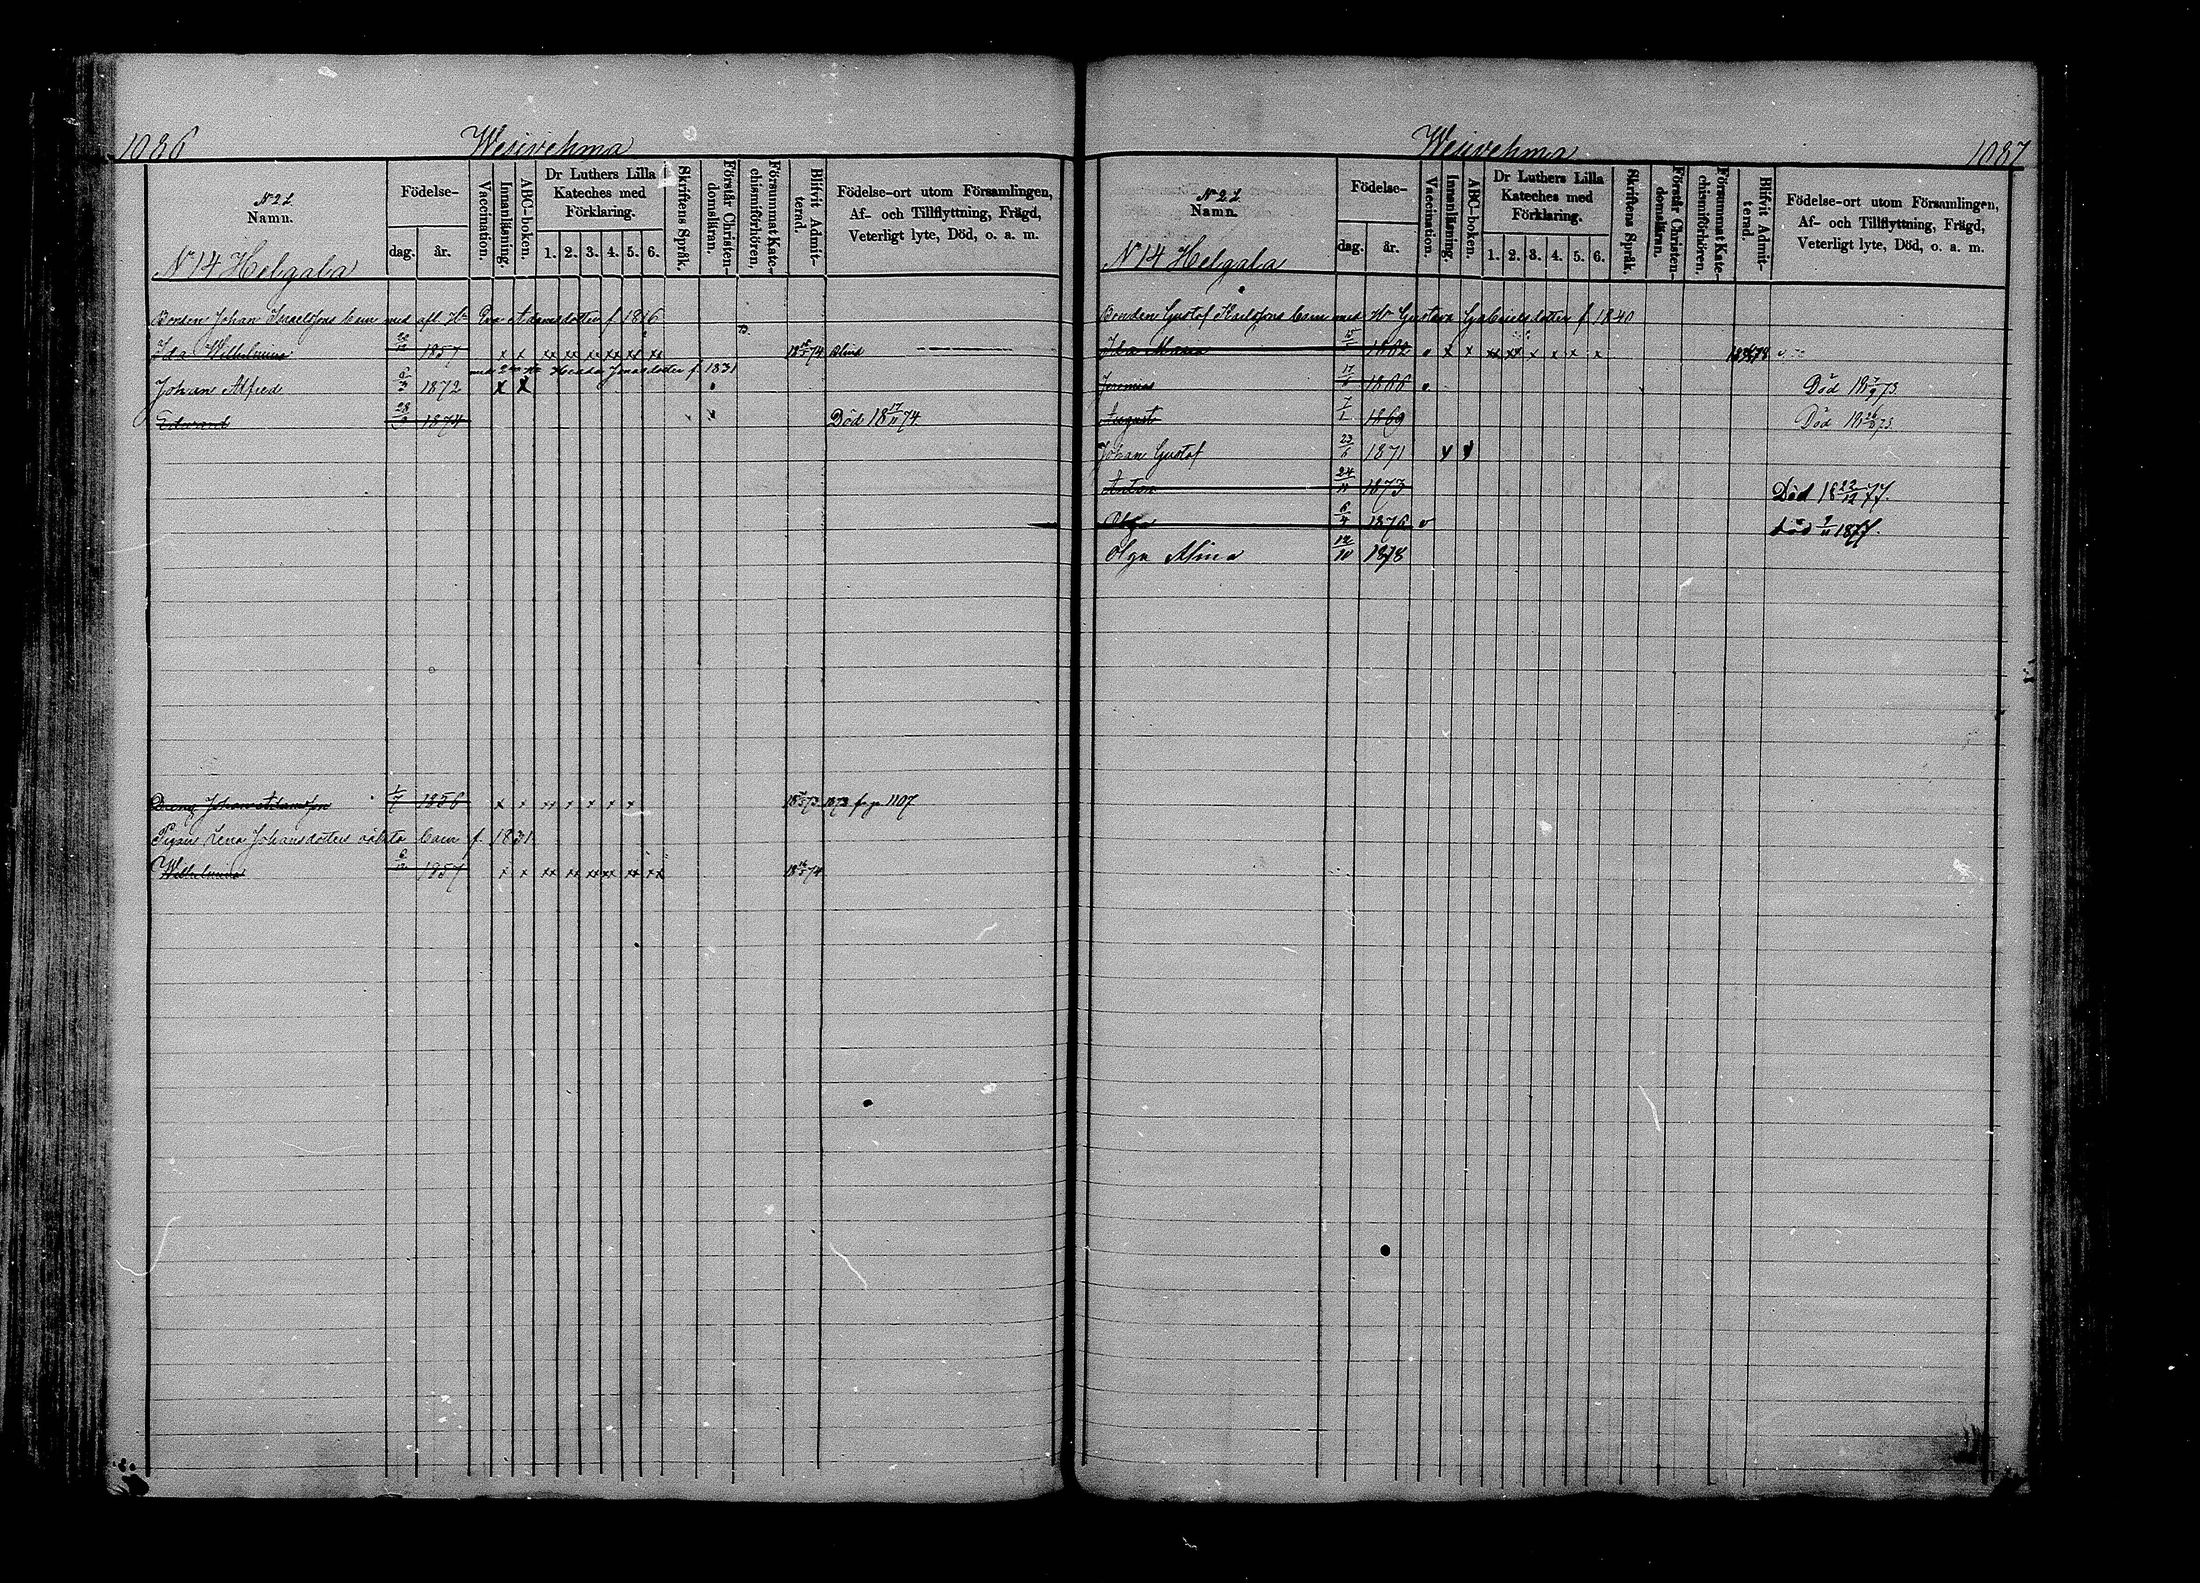 1086
Wesivehma
N 2 L
Namn.
Födelse-
dag.
år.
Vaccination.
Innanläsning.
ABC-boken.
Dr Luthers Lilla
Kateches med
Förklaring.
1. 2. 3. 4. 5. 6.
Skriftens Språk.
Förstår Christen-
domsläran.
Försummat Kate-
chismiförhören,
Blifvit Admit-
terad.
Födelse-ort utom Församlingen,
Af- och Tillflyttning, Frägd,
Veterligt lyte, Död, o. a. m.
N 14 Helgala
Bonden Johan Israelssons barn med afl. H Eva Adamsdotter f 1816
Ida Wilhelmina 1857 x x xx xx xx xx xx xx 74 Blind
med 2 Hu Hedda f. 1831
Johan Alfred 1872 x x
Edvard 28 1874 Död 18 17/11 74.
Dreng Johan Adamsson 1/7 1856 x x xx x x x x 73 1873 page 1107
Pigan Lena Johansdotters oäkta barn f. 1831
Wilhelmina 6/12 1857 x x xx xx xx xx xx xx 74
Wesivehma
1087
N 2 L
Namn.
Födelse-
dag.
år.
Vaccination.
Innanläsning.
ABC-boken.
Dr Luthers Lilla
Kateches med
Förklaring.
1. 2. 3. 4. 5. 6.
Skriftens Språk.
Förstår Christen-
domsläran.
Försummat Kate-
chismiförhören.
Blifvit Admit-
terad.
Födelse-ort utom Församlingen,
Af- och Tillflyttning, Frägd,
Veterligt lyte, Död, o. a. m.
N 14 Helgala
Bonden Gustof Karlssons barn med Hu Gustava Gabrielsdotter f 1840
Ida Maria 1862 v x x xx xx x x x x 78
Jeremias 17 1866 v Död 18 7/9 73.
August 7/1 1869 Död 73.
Johan Gustof 23 1871 x x
Anton 24/11 1873 Död 18 22/12 77.
Olga 6/4 1876 v död 1877.
Olga Alina 12/10 1878